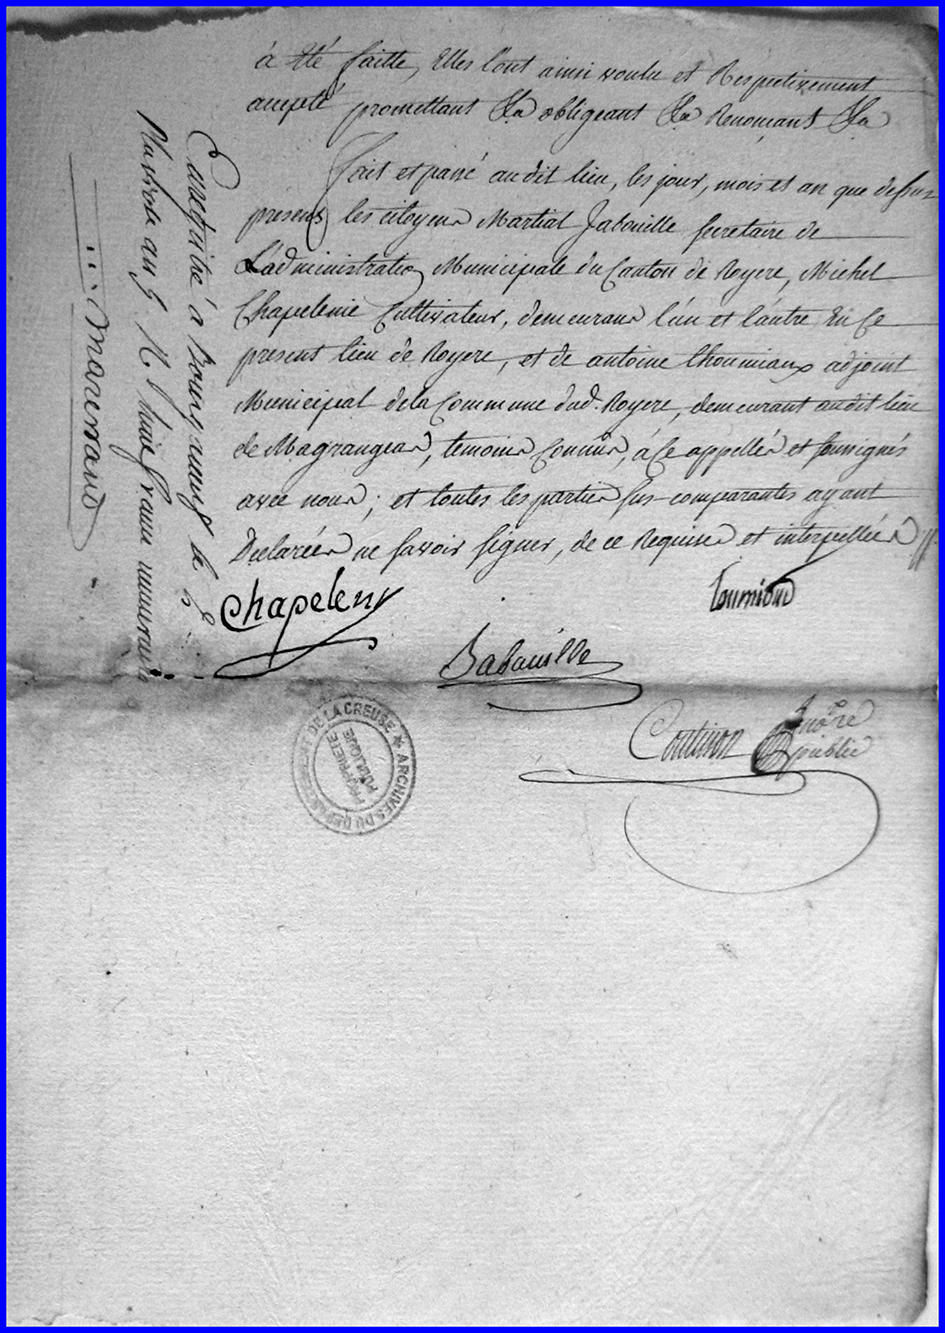 à été faitte, Elles l'ont ainsi voulu et Respectivement
accepté promettant &a obligeant &a Renonçant &a
fait et passé audit lieu, les jour, mois et an que dessus
presens les citoyens Martial Jabouille secretaire de
L'administration Municipale du Canton de Royere, Michel
Chapelenie Cultivateur, demeurans l'un et l'autre En Ce
present lieu de Royere, et de antoine thoumiaux adjoint
Municipal de la Commune dud. Royere, demeurant audit lieu
de Magrangeas, temoins Connus, à Ce appellés et soussignés
avec nous; et toutes les parties sus-comparantes ayant
Declarées ne savoir signer, de ce Requises et interpellées
Chapeleny
Toumioud
Jabouille
Coutisson Nore
public
Enregistré à Bourganeuf le
Pluviose an 5 R.
Maremaud
ARCHIVES DU DEPARTEMENT DE LA CREUSE
PROPRIETE
PUBLIQUE